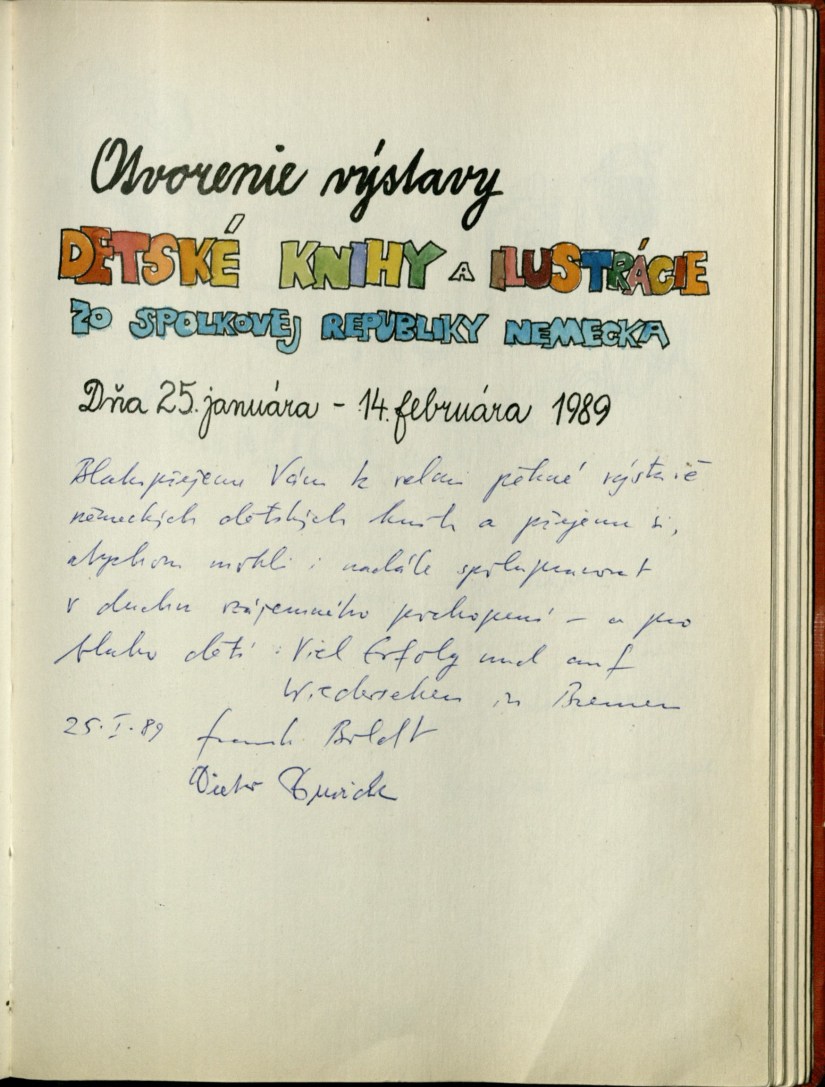 Otvorenie výstavy
DETSKÉ KNIHY A ILUSTRÁCIE
ZO SPOLKOVEJ REPUBLIKY NEMECKA
Dňa 25. januára - 14. februára 1989
Blahopřejeme Vám k velmi pěkné výstavě
německých dětských knih a přejeme si,
abychom mohli i nadále spolupracovat
v duchu vzájemného pochopení - a pro
blaho dětí: Viel Erfolg und auf
Wiedersehen in Bremen
25.I.89 Frank Boldt
Dieter